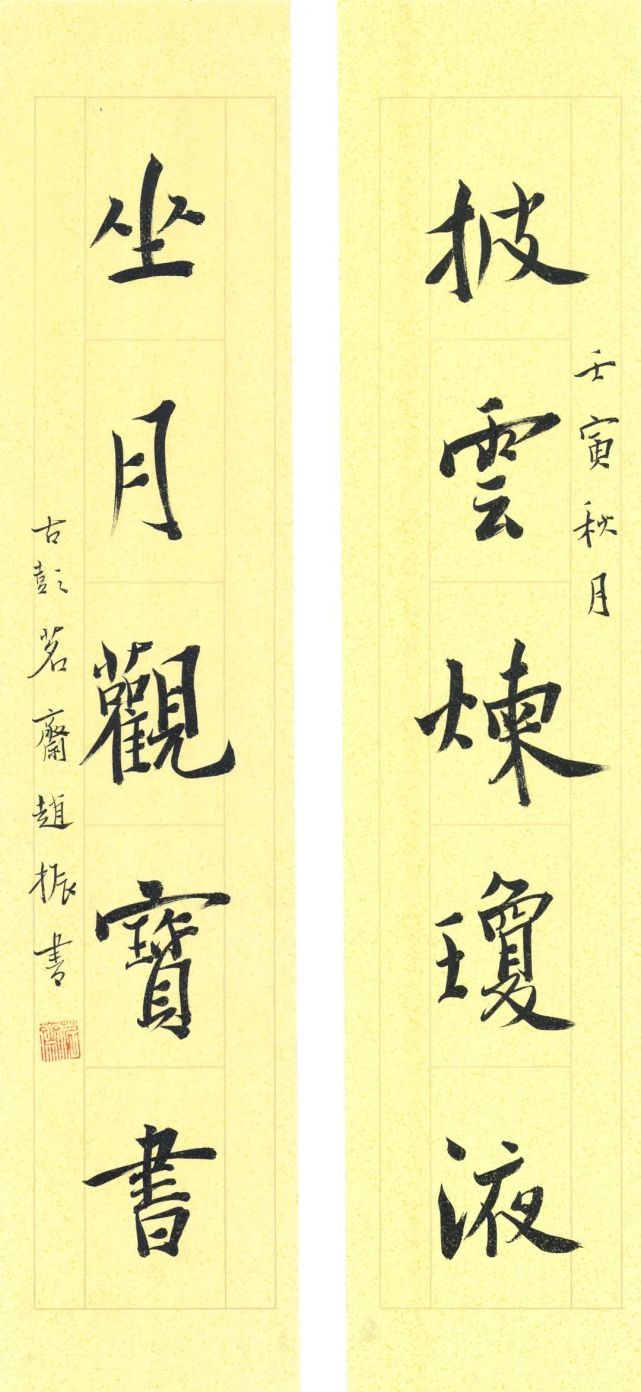 壬寅秋月
披雲煉瓊液
坐月觀寶書
古彭茗齋趙振書
茗齋